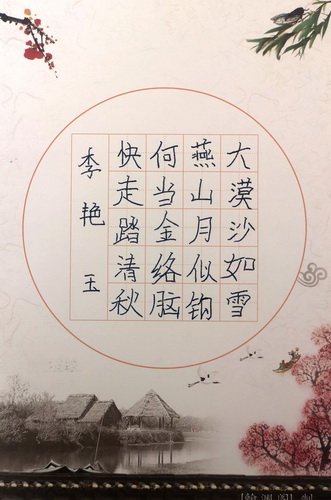 大漠沙如雪
燕山月似钩
何当金络脑
快走踏清秋
李艳玉